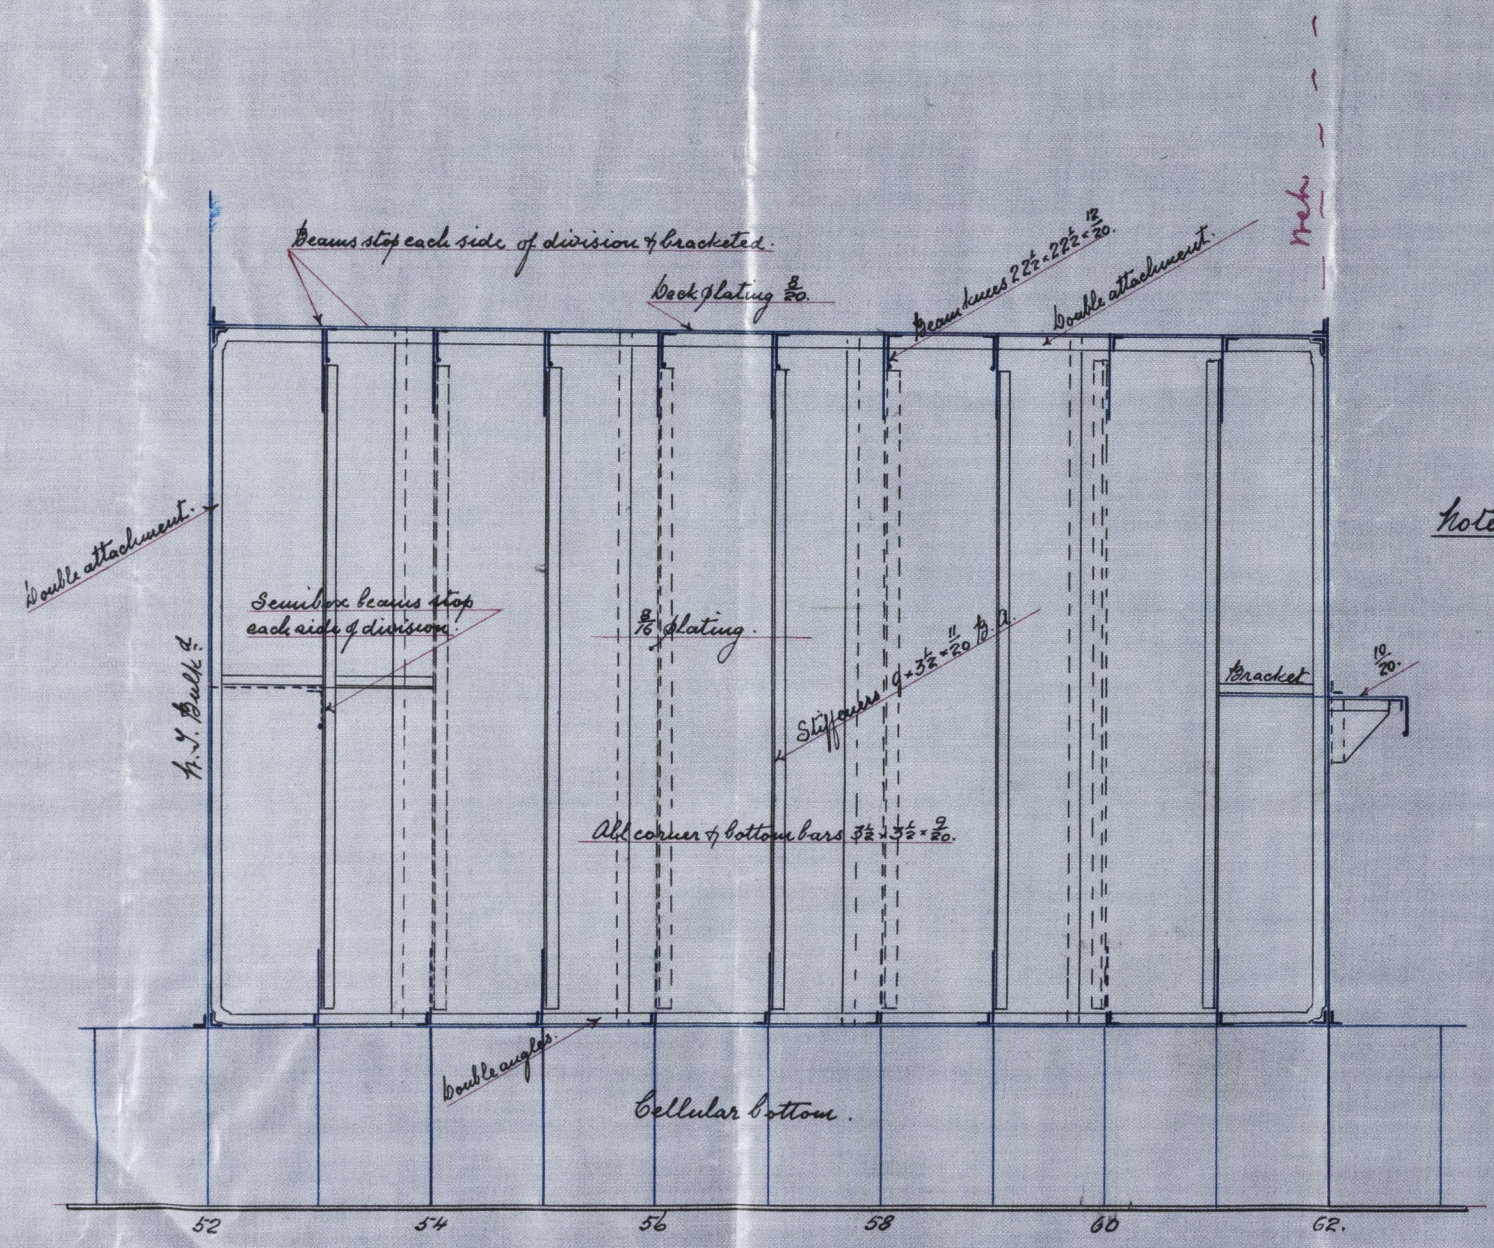 Beams stop each side of division & bracketed.
Deck plating 8/20.
Beam knees 22½ × 22½ × 12/20.
Double attachment.
Double attachment.
Semibox beams stop
each side of division.
8/16 plating.
Stiffeners 9 × 3½ × 11/20 B.A.
W.T. Bulkd
Bracket
10/20.
All corner & bottom bars 3½ × 3½ × 9/20.
Note
Double angles.
Cellular bottom.
52 54 56 58 60 62.